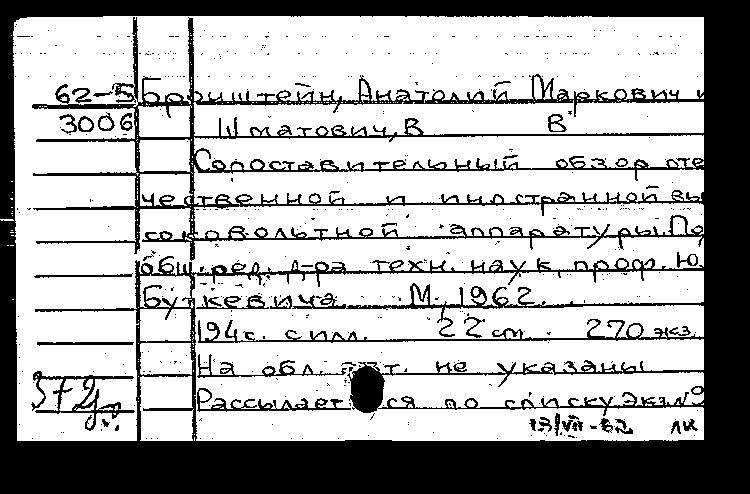 62-5 Бронштейн, Анатолий Маркович и
3006 Шматович, В В
Сопоставительный обзор оте
чественной и иностранной вы
соковольтной аппаратуры. По
общ. ред. д-ра техн. наук, проф. Ю.
Буткевича. М., 1962.
194 с. с илл. 22 см. 270 экз.
На обл. авт. не указаны
Рассылается по списку Экз. №
13/VII-62 ЛК